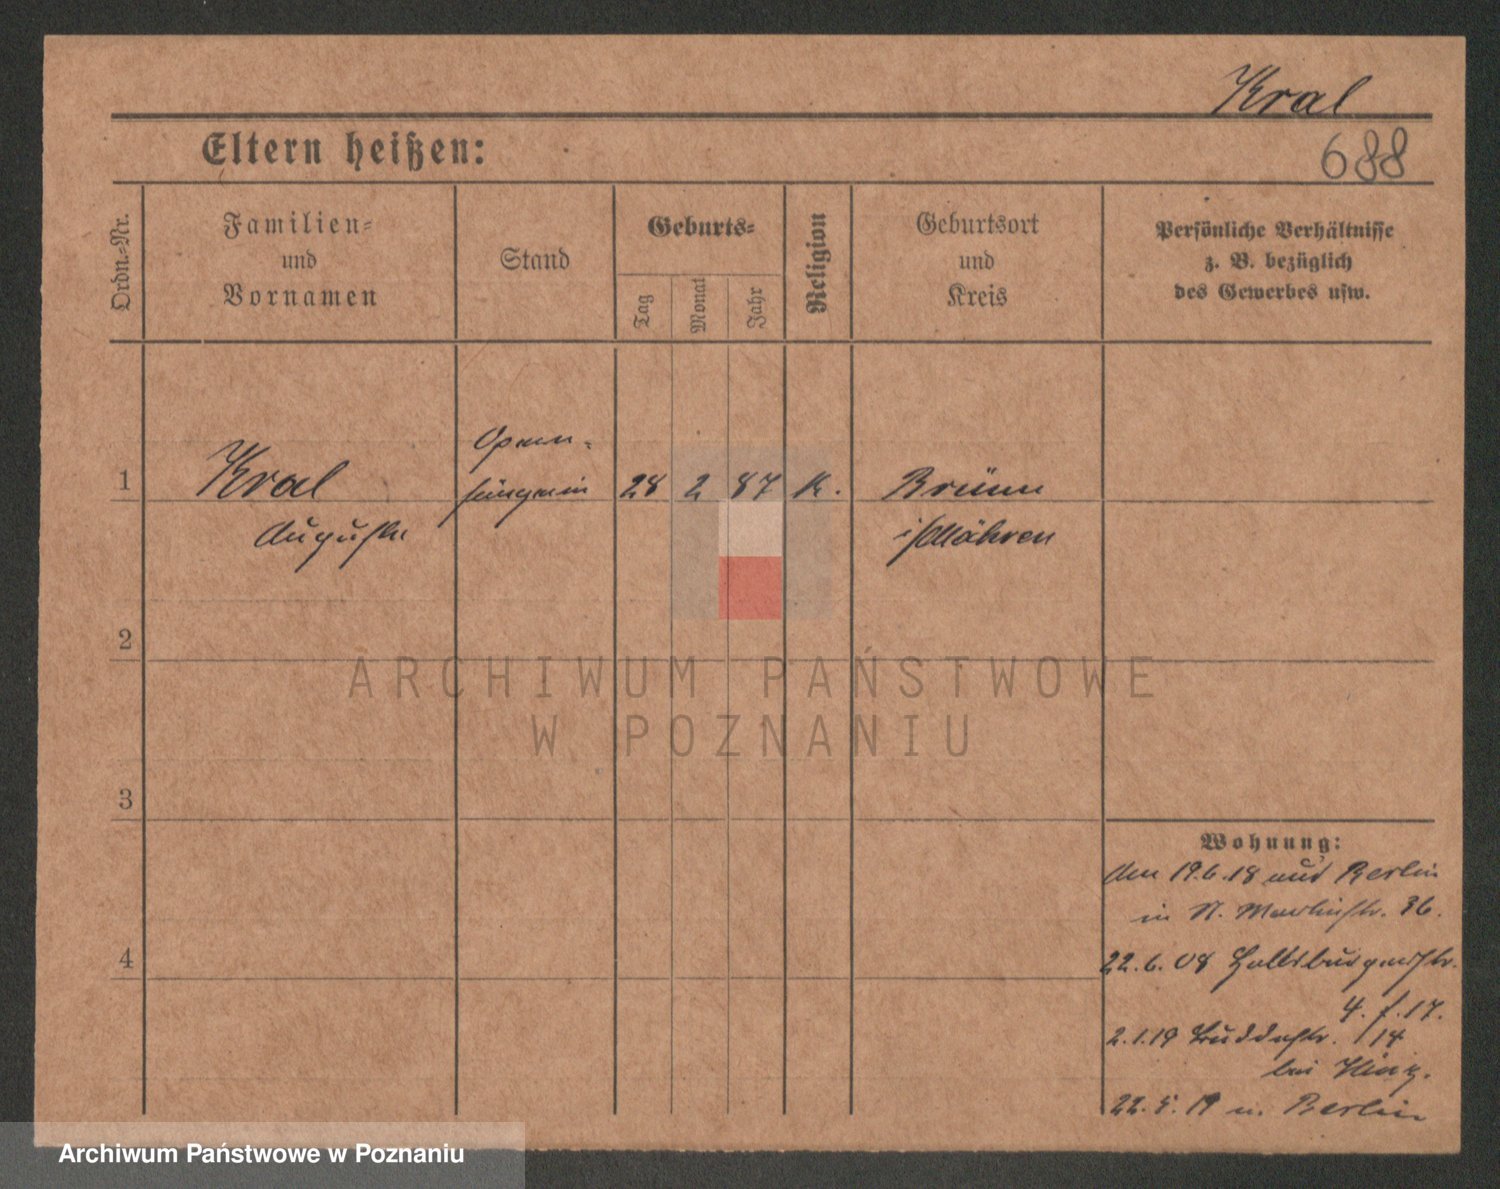 Kral
Eltern heißen:
688
Ordn.-Nr.
Familien-
und
Vornamen
Stand
Geburts-
Tag
Monat
Jahr
Religion
Geburtsort
und
Kreis
Persönliche Verhältnisse
z. B. bezüglich
des Gewerbes usw.
1
Kral
Auguste
Opern-
sängerin
28 2 87 K.
Brünn
i/Mähren
2
ARCHIWUM PAŃSTWOWE
W POZNANIU
3
Wohnung:
den 19.6.18 aus Berlin
in St. Martinstr. 36.
4
22.6.08
17.
2.1.19 Buddestr. 14
bei
22.5.19 n. Berlin
Archiwum Państwowe w Poznaniu